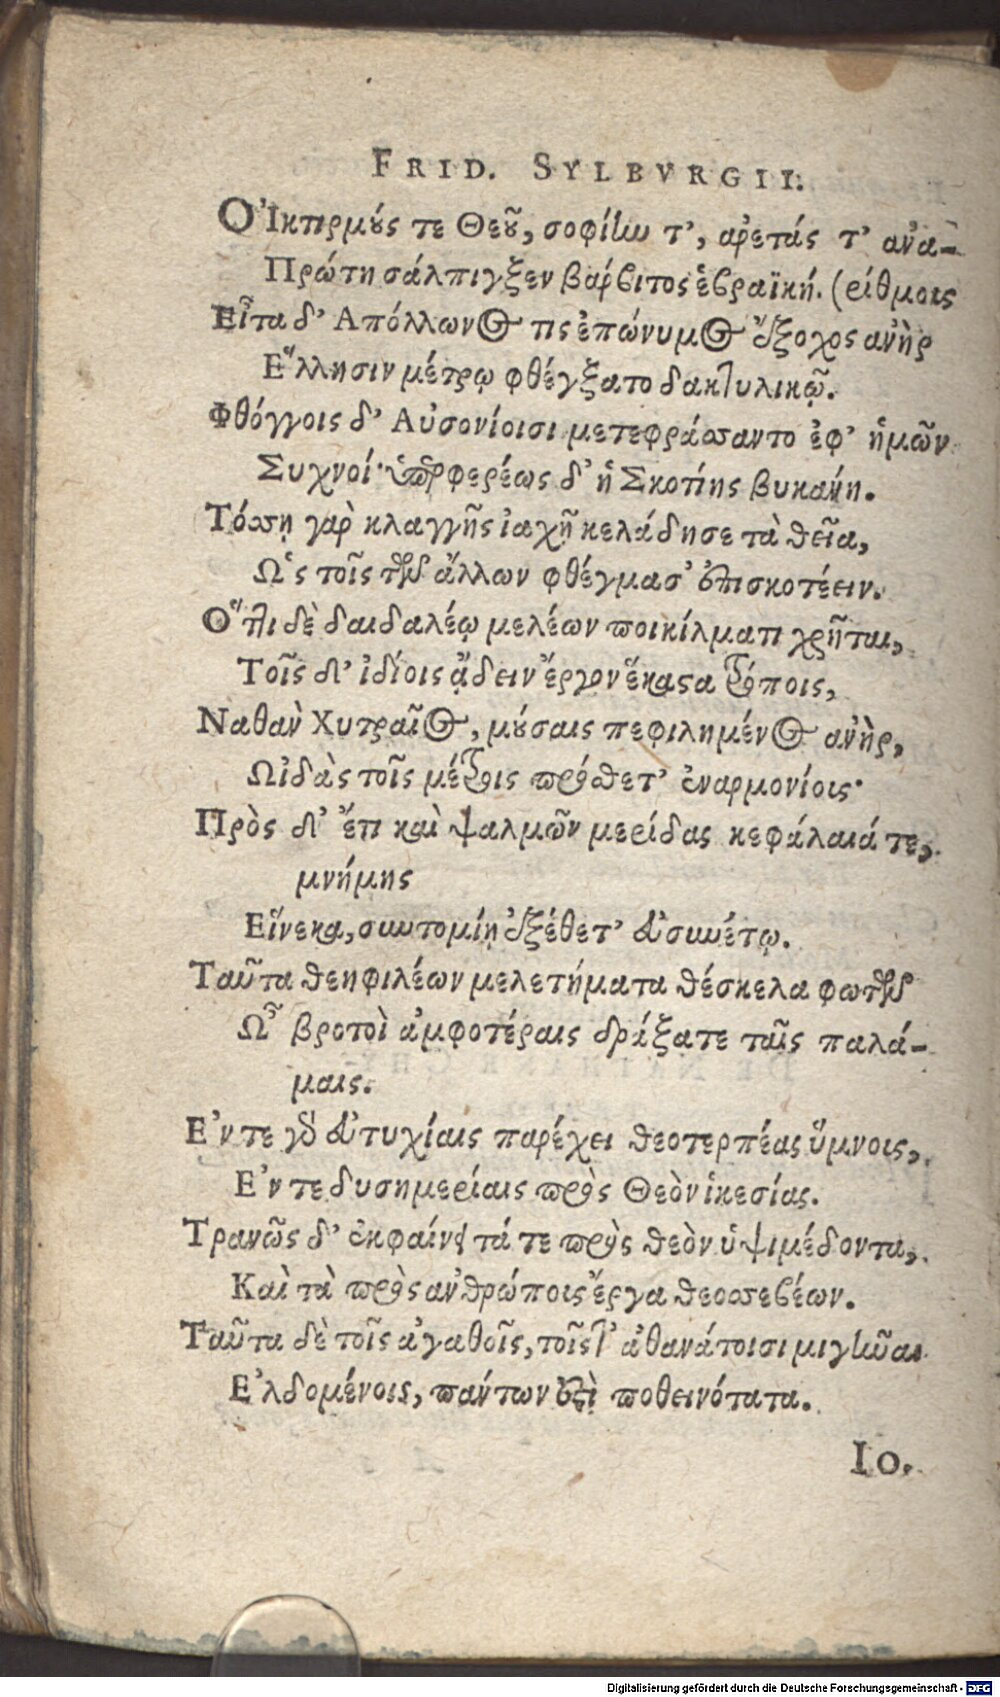 FRID. SYLBVRGII.
Ο᾿Ικτιρμούς τε Θεοῦ, σοφίην τ᾿, ἀρετάς τ᾿ ἀνα-
Πρώτη σάλπιγξεν βάρβιτος ἑβραϊκή. (είθμοις
Εἶτα δ᾿ Απόλλωνος τις ἐπώνυμος ἔξοχος ἀνὴρ
Ε῞λλησιν μέτρῳ φθέγξατο δακτυλικῷ.
Φθόγγοις δ᾿ Αὐσονίοισι μετεφράσσαντο ἐφ᾿ ἡμῶν
Συχνοί· ὑπερφερέως δ᾿ ἡ Σκοτίης βυκάνη.
Τόσσῃ γὰρ κλαγγῆς ἰαχῇ κελάδησε τὰ θεῖα,
Ω῾ς τοῖς τῶν ἄλλων φθέγμασ᾿ ἐπισκοτέειν.
Ο῞ττι δὲ δαιδαλέῳ μελέων ποικίλματι χρῆται,
Τοῖς δ᾿ ἰδίοις ᾄδειν ἔργον ἕκαστα τόποις,
Ναθὰν Χυτραῖος, μούσαις πεφιλημένος ἀνὴρ,
Ωἰδὰς τοῖς μέτροις πρόσθετ᾿ ἐναρμονίοις·
Πρὸς δ᾿ ἔτι καὶ ψαλμῶν μερίδας κεφάλαιά τε,
μνήμης
Εἵνεκα, συντομίῃ ἐξέθετ᾿ εὐσυνέτῳ.
Ταῦτα θεηφιλέων μελετήματα θέσκελα φωτῶν
Ω῏ βροτοὶ ἀμφοτέραις δράξατε ταῖς παλά-
μαις.
Ε᾿ν τε γὰρ εὐτυχίαις παρέχει θεοτερπέας ὕμνοις,
Ε᾿ν τε δυσημερίαις πρὸς Θεὸν ἱκεσίας.
Τρανῶς δ᾿ ἐκφαίνει τά τε πρὸς θεὸν ὑψιμέδοντα,
Καὶ τὰ πρὸς ἀνθρώποις ἔργα θεοσσεβέων.
Ταῦτα δὲ τοῖς ἀγαθοῖς, τοῖς τ᾿ ἀθανάτοισι μιγῆναι
Ε᾿λδομένοις, πάντων ἐστὶ ποθεινότατα.
Io.
Digitalisierung gefördert durch die Deutsche Forschungsgemeinschaft - DFG